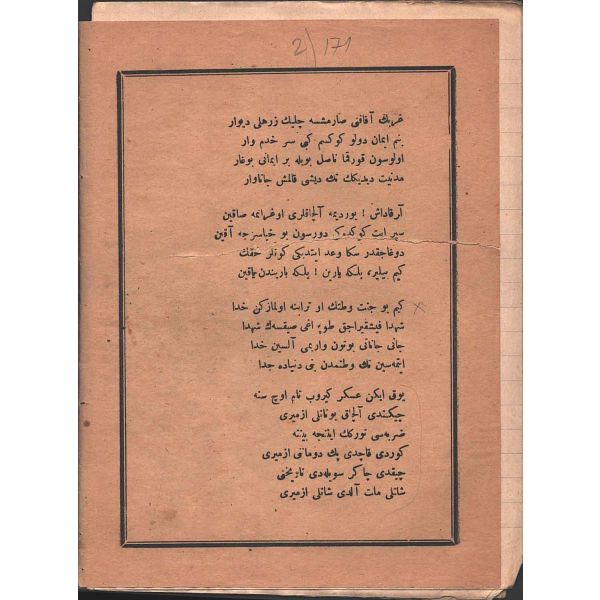 2/171
غربك آفاقنى صارمشسه چليك زرهلى ديوار
بنم ايمان دولو كوكسم كبى سر خدم وار
اولوسون قورقما ناصل بويله بر ايمانى بوغار
مدنيت ديديكك تك ديشى قالمش جاناوار
آرقاداش ! يورديمه آلچاقلرى اوغراتمه صاقين
سپر ايت كوكده‌كى دورسون بو حياسزجه آقين
دوغاجقدر سكا وعد ايتديكى كونلر حقك
كيم بيلير، بلكه يارين ! بلكه ياريندن ياقين
كيم بو جنت وطنك او ترابنه اولمازكن خدا
شهدا فيشقيراجق طوپراغى صيقسه‌ك شهدا
جانى جانانى بوتون واريمى آلسين خدا
ايتمه‌سين تك وطنمدن بنى دنياده جدا
يوق ايكن عسكر كيروب تام اوچ سنه
چيكنه‌دى آلچاق يونانلى ازميرى
ضربه‌سى توركك اينتجه بيننه
كوردى قاچدى پك دومانى ازميرى
چيقدى چاكر سويله‌دى تاريخنى
شانلى ملت آلدى شانلى ازميرى